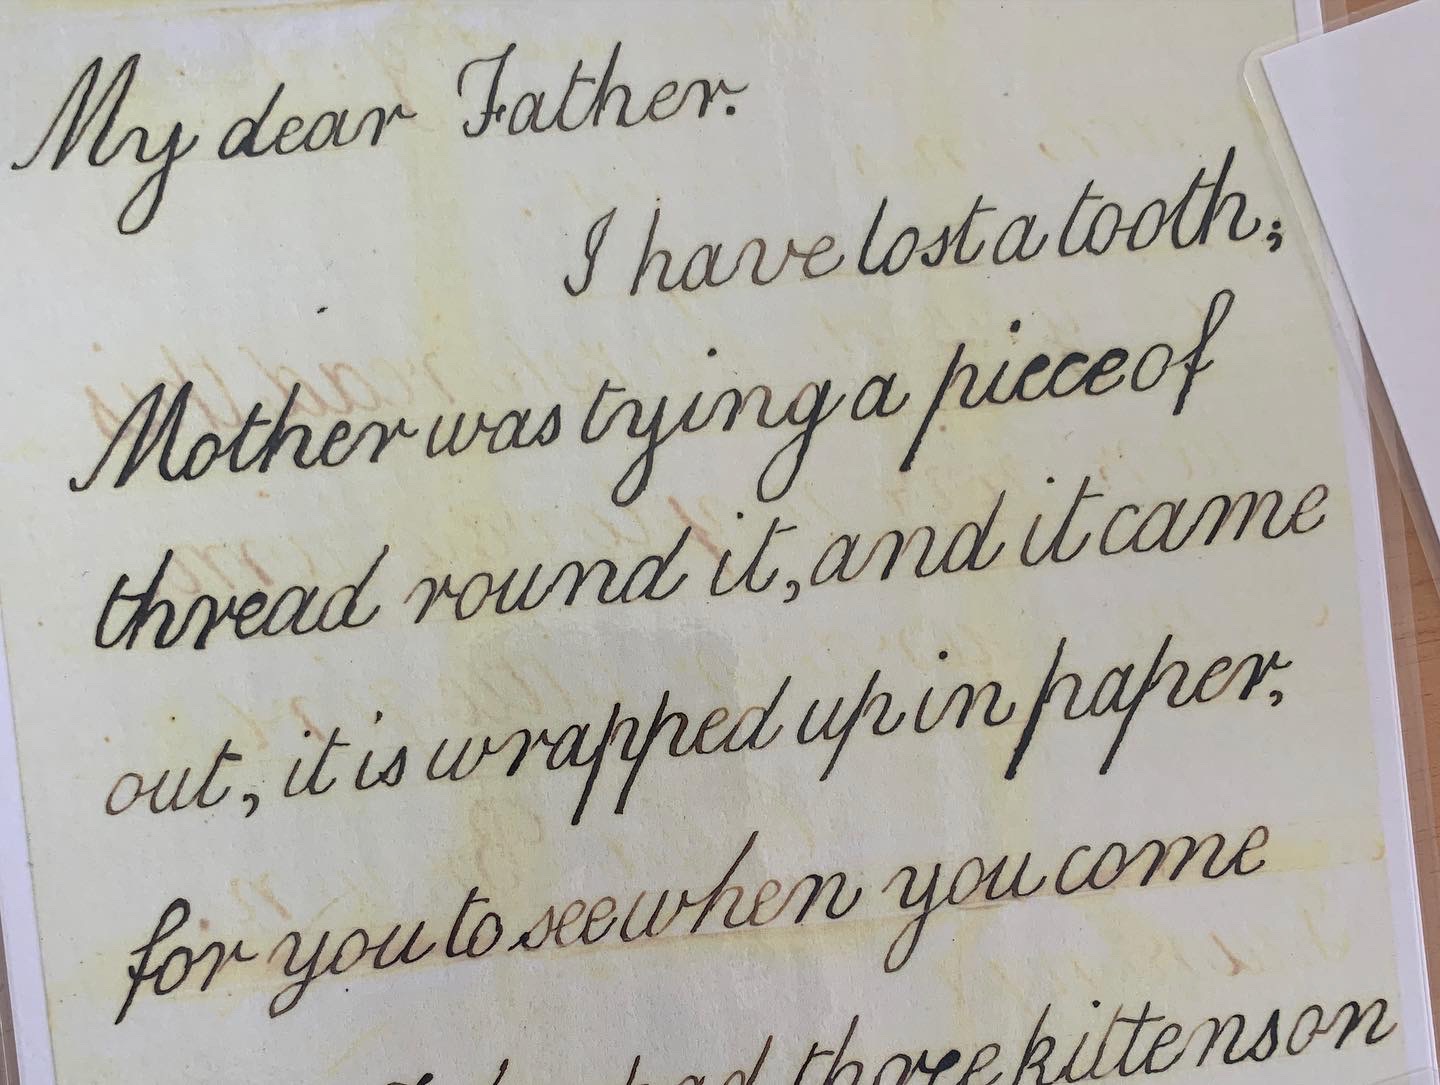 My dear Father.
I have lost a tooth;
Mother was tying a piece of
thread round it, and it came
out, it is wrapped up in paper,
for you to see when you come
had three kittens on